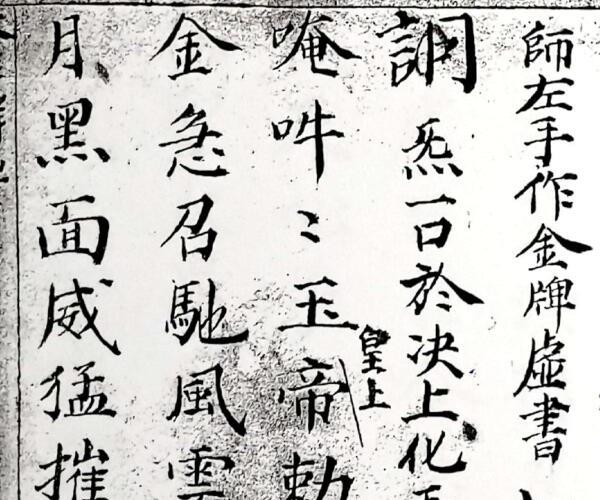 師左手作金牌虛書
詷炁一口於决上化
唵吽〻玉帝勅
皇上
金急召馳風雲
月黑面威猛摧